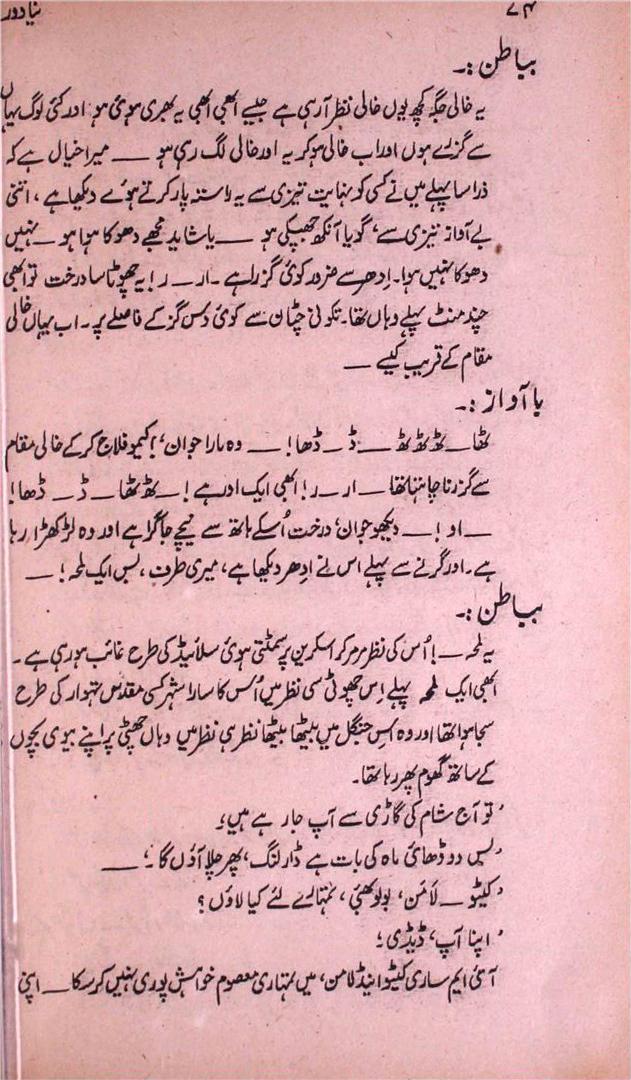 ۷۴ نیا دور
بباطن :۔
یہ خالی جگہ کچھ یوں خالی نظر آرہی ہے جیسے ابھی ابھی یہ بھری ہوئی ہو اور کئی لوگ یہاں
سے گزرے ہوں اور اب خالی ہوکر یہ اور خالی لگ رہی ہو ــــ میرا خیال ہے کہ
ذرا سا پہلے میں نے کسی کو نہایت تیزی سے یہ راستہ پار کرتے ہوئے دیکھا ہے ، اتنی
بے آواز تیزی سے، گویا آنکھ جھپکی ہو ــــ یا شاید مجھے دھوکا ہوا ہو ــ نہیں
دھوکا نہیں ہوا۔ ادھر سے ضرور کوئی گزرا ہے ۔ ار ــ ر! یہ چھوٹا سا درخت تو ابھی
چند منٹ پہلے وہاں تھا۔ تکونی چٹان سے کوئی دس گز کے فاصلے پر۔ اب یہاں خالی
مقام کے قریب کیسے ــــ
با آواز :۔
ٹھا ــ ٹھ ٹھ ٹھ ــــ ڈ ــ ڈھا! ــــ وہ مارا جوان،! کیموفلاج کرکے خالی مقام
سے گزرنا چاہتا تھا ــــ ار ــ ر! ابھی ایک اور ہے! ــ ٹھ ٹھا ــ ڈ ــ ڈھا!
ــــ او! ــــ دیکھو جوان، درخت اُسکے ہاتھ سے نیچے جاگرا ہے اور وہ لڑکھڑا رہا
ہے۔ اور گرنے سے پہلے اس نے ادھر دیکھا ہے، میری طرف ، بس ایک لمحہ! ــــ
بباطن :۔
یہ لمحہ ــــ! اُس کی نظر مرمر کر اسکرین پر سمٹتی ہوئی سلائیڈ کی طرح غائب ہو رہی ہے ۔
ابھی ایک لمحہ پہلے اِس چھوٹی سی نظر میں اُس کا سارا شہر کسی مقدس تہوار کی طرح
سجا ہوا تھا اور وہ اس جنگل میں بیٹھا بیٹھا نظر ہی نظر میں وہاں چھٹی پر اپنے بیوی بچوں
کے ساتھ گھوم پھر رہا تھا۔
' تو آج شام کی گاڑی سے آپ جا رہے ہیں؟'
' بس دو ڈھائی ماہ کی بات ہے ڈارلنگ، پھر چلا آؤں گا ۔' ــــ
' کیٹو ــ لامن، بولو بھئی ، تمہارے لئے کیا لاؤں؟
' اپنا آپ، ڈیڈی؛
آئی ایم ساری کیٹو اینڈ لامن، میں تمہاری معصوم خواہش پوری نہیں کرسکا ــــ اپنی